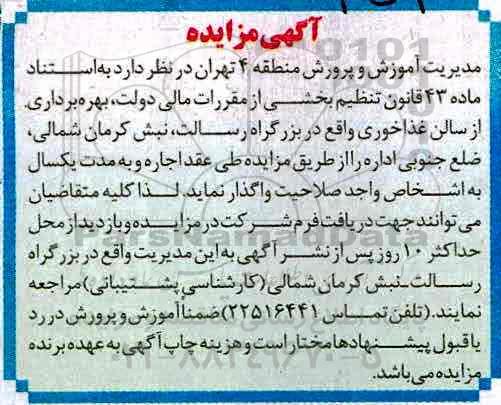 آگهی مزایده
مدیریت آموزش و پرورش منطقه ۴ تهران در نظر دارد به استناد
ماده ۴۳ قانون تنظیم بخشی از مقررات مالی دولت، بهره برداری
از سالن غذاخوری واقع در بزرگراه رسالت، نبش کرمان شمالی،
ضلع جنوبی اداره را از طریق مزایده طی عقد اجاره و به مدت یکسال
به اشخاص واجد صلاحیت واگذار نماید. لذا کلیه متقاضیان
می توانند جهت دریافت فرم شرکت در مزایده و بازدید از محل
حداکثر ۱۰ روز پس از نشر آگهی به این مدیریت واقع در بزرگراه
رسالت-نبش کرمان شمالی (کارشناسی پشتیبانی) مراجعه
نمایند. (تلفن تماس ۲۲۵۱۶۴۴۱) ضمناً آموزش و پرورش در رد
یا قبول پیشنهادها مختار است و هزینه چاپ آگهی به عهده برنده
مزایده می باشد.
ParsNamadData